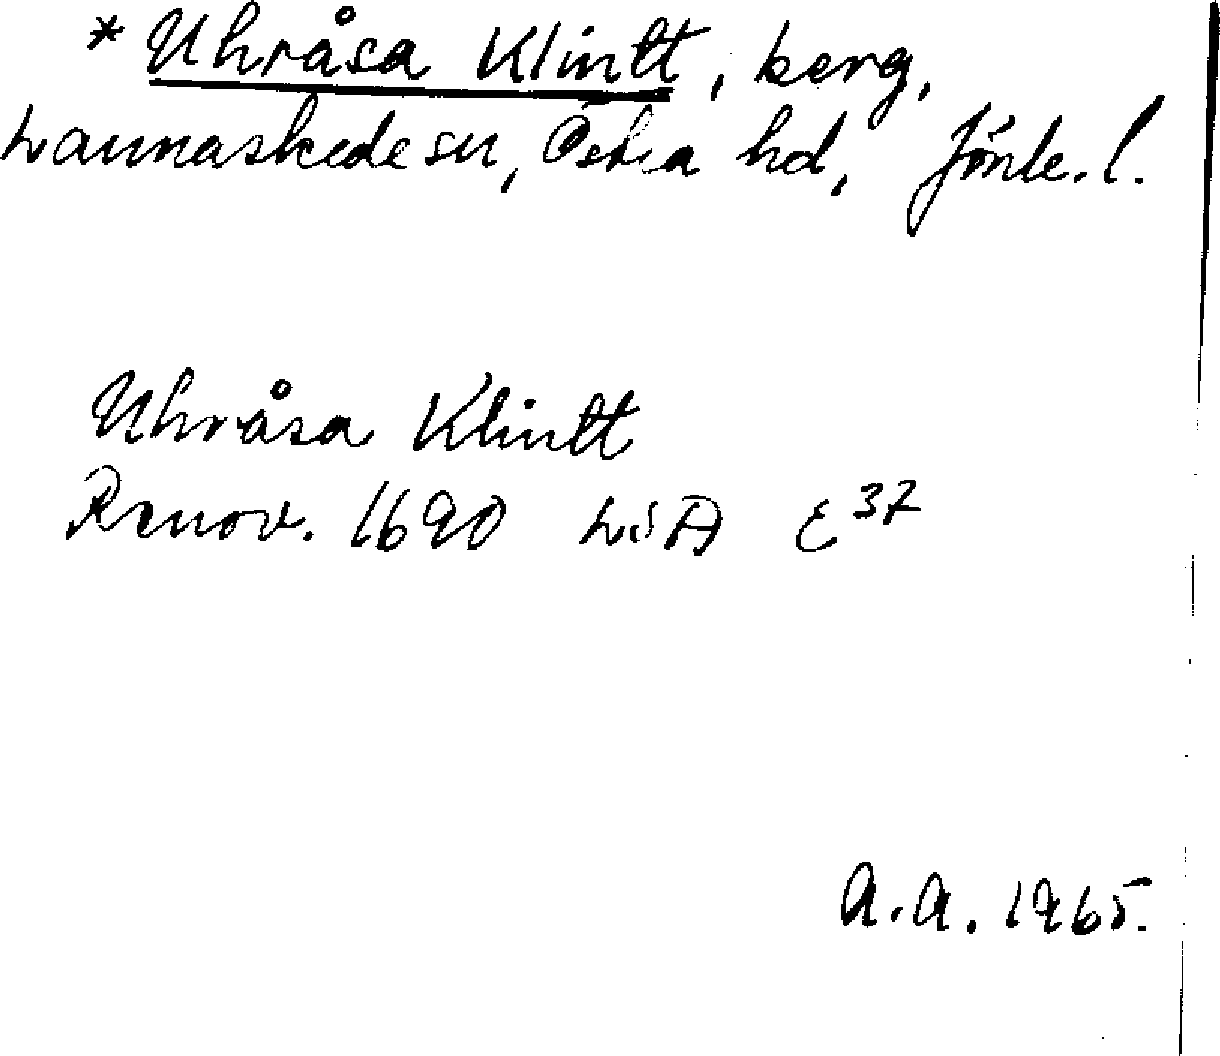 * Uhråsa Klintt, berg,
Lannaskede sn, Östra hd, Jönk. l.
Uhråsa Klintt
Renov. 1690 LSA E 37
A.A. 1965.